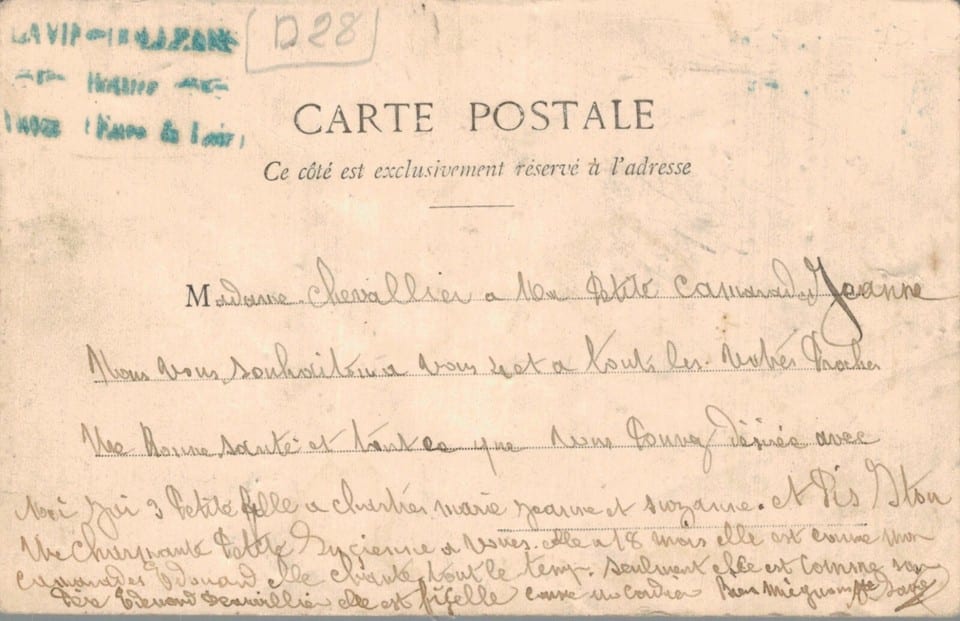 D28
CARTE POSTALE
Ce côté est exclusivement réservé à l'adresse
Madame Chevallier a Ma Petite Camarade Jeanne
Nous Vous souhaitons a vous et a touts les votres Proches
Une Bonne santé et tout ce que vous Pouvez désirée avec
Moi J'ai 3 Petite fille a chartres marie Jeanne et suzanne. et Pis
Une Charmante Petite a Voves. elle a 18 mois elle est comme mon
camarades Edouard elle chante tout le temp. seulment elle est comme son
Père Edouard elle est ficelle comme un cordier Bien